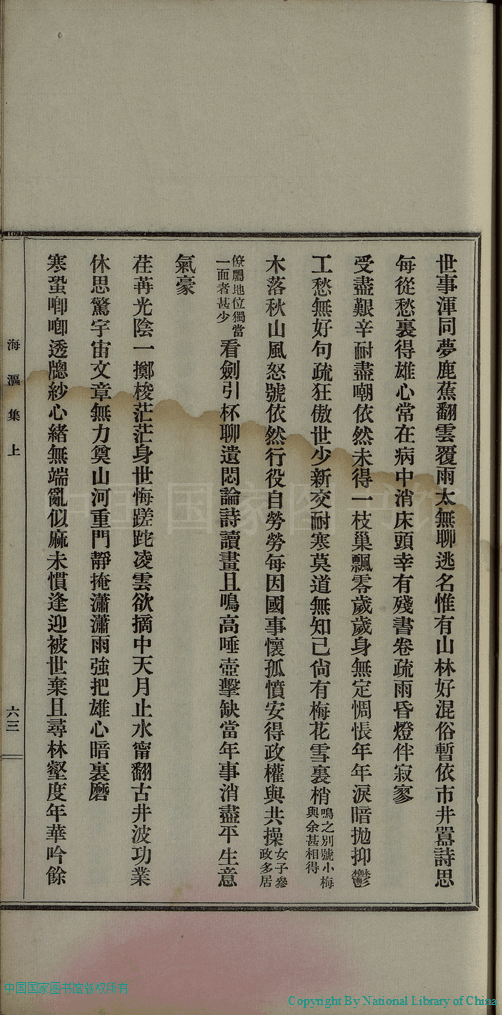 世事渾同夢鹿蕉翻雲覆雨太無聊逃名惟有山林好混俗暫依市井囂詩思
每從愁裏得雄心常在病中消床頭幸有殘書卷疏雨昏燈伴寂寥
受盡艱辛耐盡嘲依然未得一枝巢飄零歲歲身無定惆悵年年淚暗拋抑鬱
工愁無好句疏狂傲世少新交耐寒莫道無知己尙有梅花雪裏梢鳴之別號小梅
與余甚相得
木落秋山風怒號依然行役自勞勞每因國事懷孤憤安得政權與共操女子參
政多居
僚屬地位獨當
一面者甚少看劍引杯聊遣悶論詩讀畫且鳴高唾壺擊缺當年事消盡平生意
氣豪
荏苒光陰一擲梭茫茫身世悔蹉跎凌雲欲摘中天月止水甯翻古井波功業
休思驚宇宙文章無力奠山河重門靜掩瀟瀟雨強把雄心暗裏磨
寒蛩唧唧透牕紗心緒無端亂似麻未慣逢迎被世棄且尋林壑度年華吟餘
海漚集上
六三
中国国家图书馆
中国国家图书馆版权所有
Copyright By National Library of China